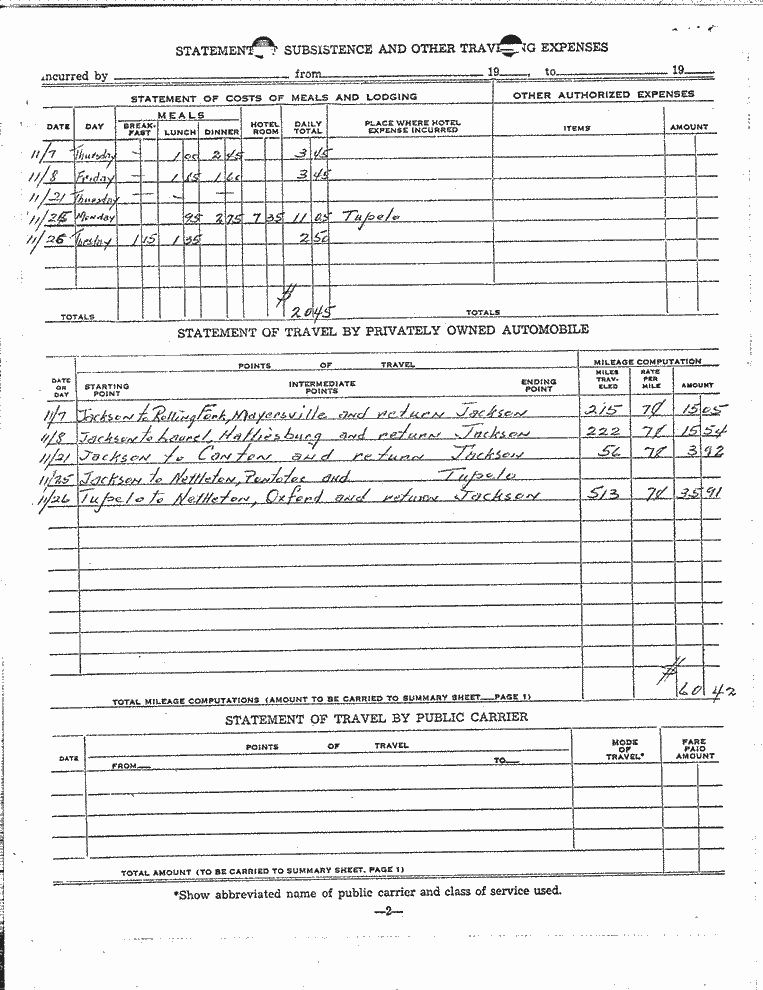 STATEMENT SUBSISTENCE AND OTHER EXPENSES
incurred by from 19 , to 19
STATEMENT OF COSTS OF MEALS AND LODGING OTHER AUTHORIZED EXPENSES
DATE DAY MEALS HOTEL ROOM DAILY TOTAL PLACE WHERE HOTEL EXPENSE INCURRED ITEMS AMOUNT
BREAK-FAST LUNCH DINNER
11/7 Thursday — 1 00 2 45 3 45
11/8 Friday — 1 1 3 45
11/21 Thursday — — —
11/25 Monday 95 2 75 7 35 11 05 Tupelo
11/26 Tuesday 1 15 1 35 2 50
TOTALS $ 20 45 TOTALS
STATEMENT OF TRAVEL BY PRIVATELY OWNED AUTOMOBILE
DATE OR DAY POINTS OF TRAVEL MILEAGE COMPUTATION
STARTING POINT INTERMEDIATE POINTS ENDING POINT MILES TRAV-ELED RATE PER MILE AMOUNT
11/7 Jackson to Rolling Fork, Mayersville and return Jackson 215 7¢ 15 05
11/8 Jackson to Laurel, Hattiesburg and return Jackson 222 7¢ 15 54
11/21 Jackson to Canton and return Jackson 56 7¢ 3 92
11/25 Jackson to Nettleton, Pontotoc and Tupelo
11/26 Tupelo to Nettleton, Oxford and return Jackson 513 7¢ 35 91
TOTAL MILEAGE COMPUTATIONS (AMOUNT TO BE CARRIED TO SUMMARY SHEET—PAGE 1) $ 60 42
STATEMENT OF TRAVEL BY PUBLIC CARRIER
DATE POINTS OF TRAVEL MODE OF TRAVEL* FARE PAID AMOUNT
FROM— TO—
TOTAL AMOUNT (TO BE CARRIED TO SUMMARY SHEET, PAGE 1)
*Show abbreviated name of public carrier and class of service used.
—2—